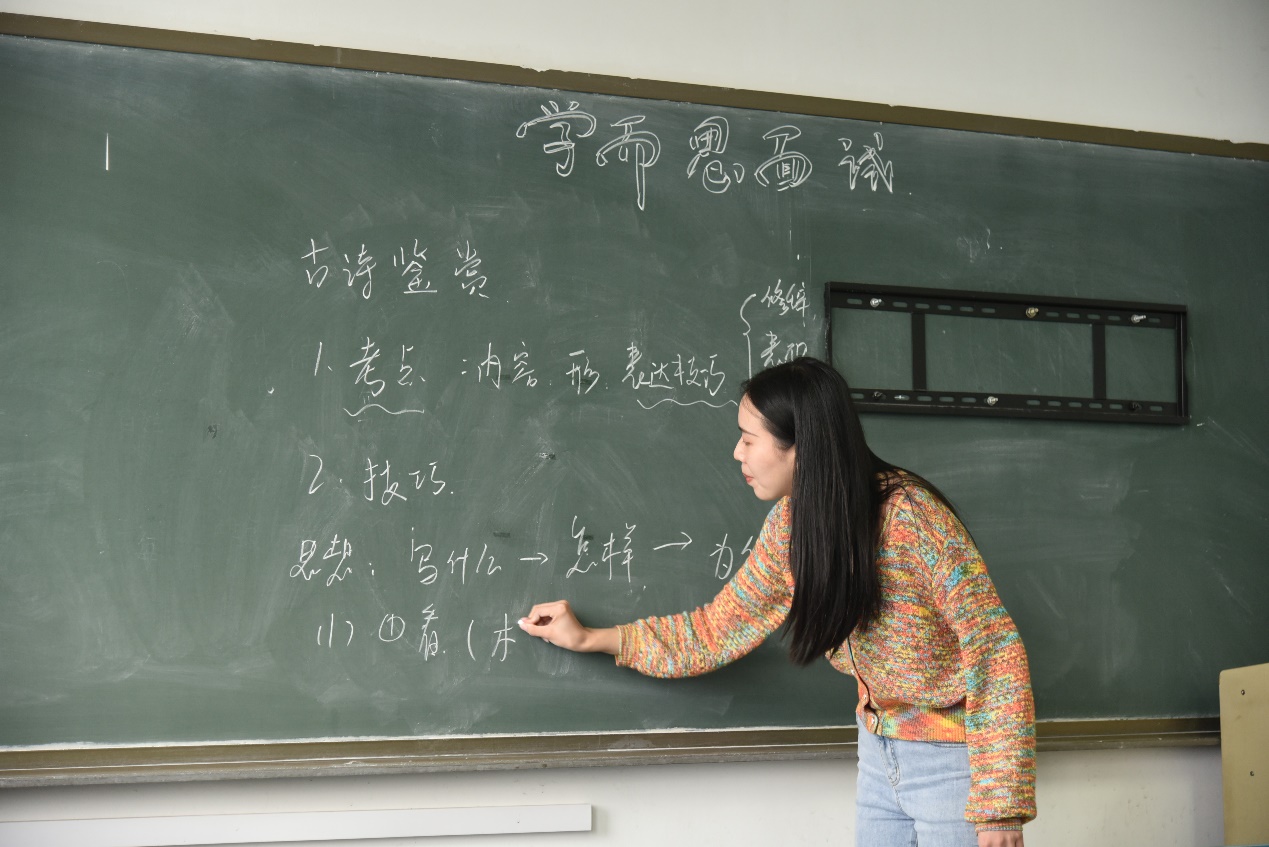 学而思面试
古诗鉴赏
修辞
1.考点:内容.形.表达技巧
表现
2.技巧.
思想:写什么→怎样→为
(1)①看.(